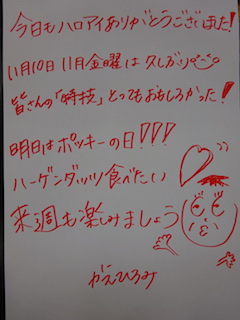 今日もハロアイありがとうございました!
11月10日 11月金曜は久しがり
皆さんの「特技」とってもおもしろかった!
明日はポッキーの日!!!
ハーゲンダッツ食べたい
来週も楽しみましょう
がえひろみ